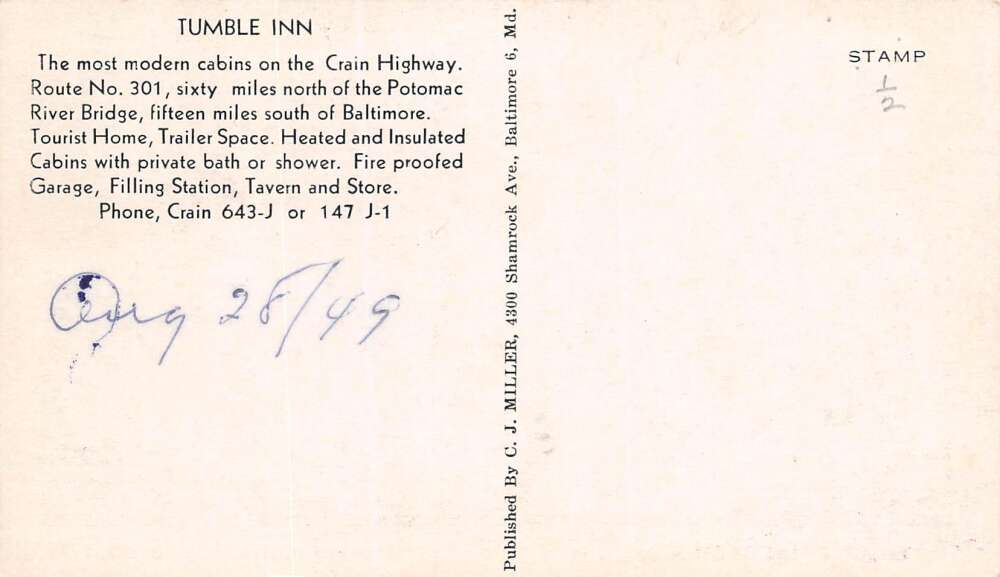 TUMBLE INN
The most modern cabins on the Crain Highway.
Route No. 301, sixty miles north of the Potomac
River Bridge, fifteen miles south of Baltimore.
Tourist Home, Trailer Space. Heated and Insulated
Cabins with private bath or shower. Fire proofed
Garage, Filling Station, Tavern and Store.
Phone, Crain 643-J or 147 J-1
Aug 28/49
Published By C. J. MILLER, 4300 Shamrock Ave., Baltimore 6, Md.
STAMP
1/2